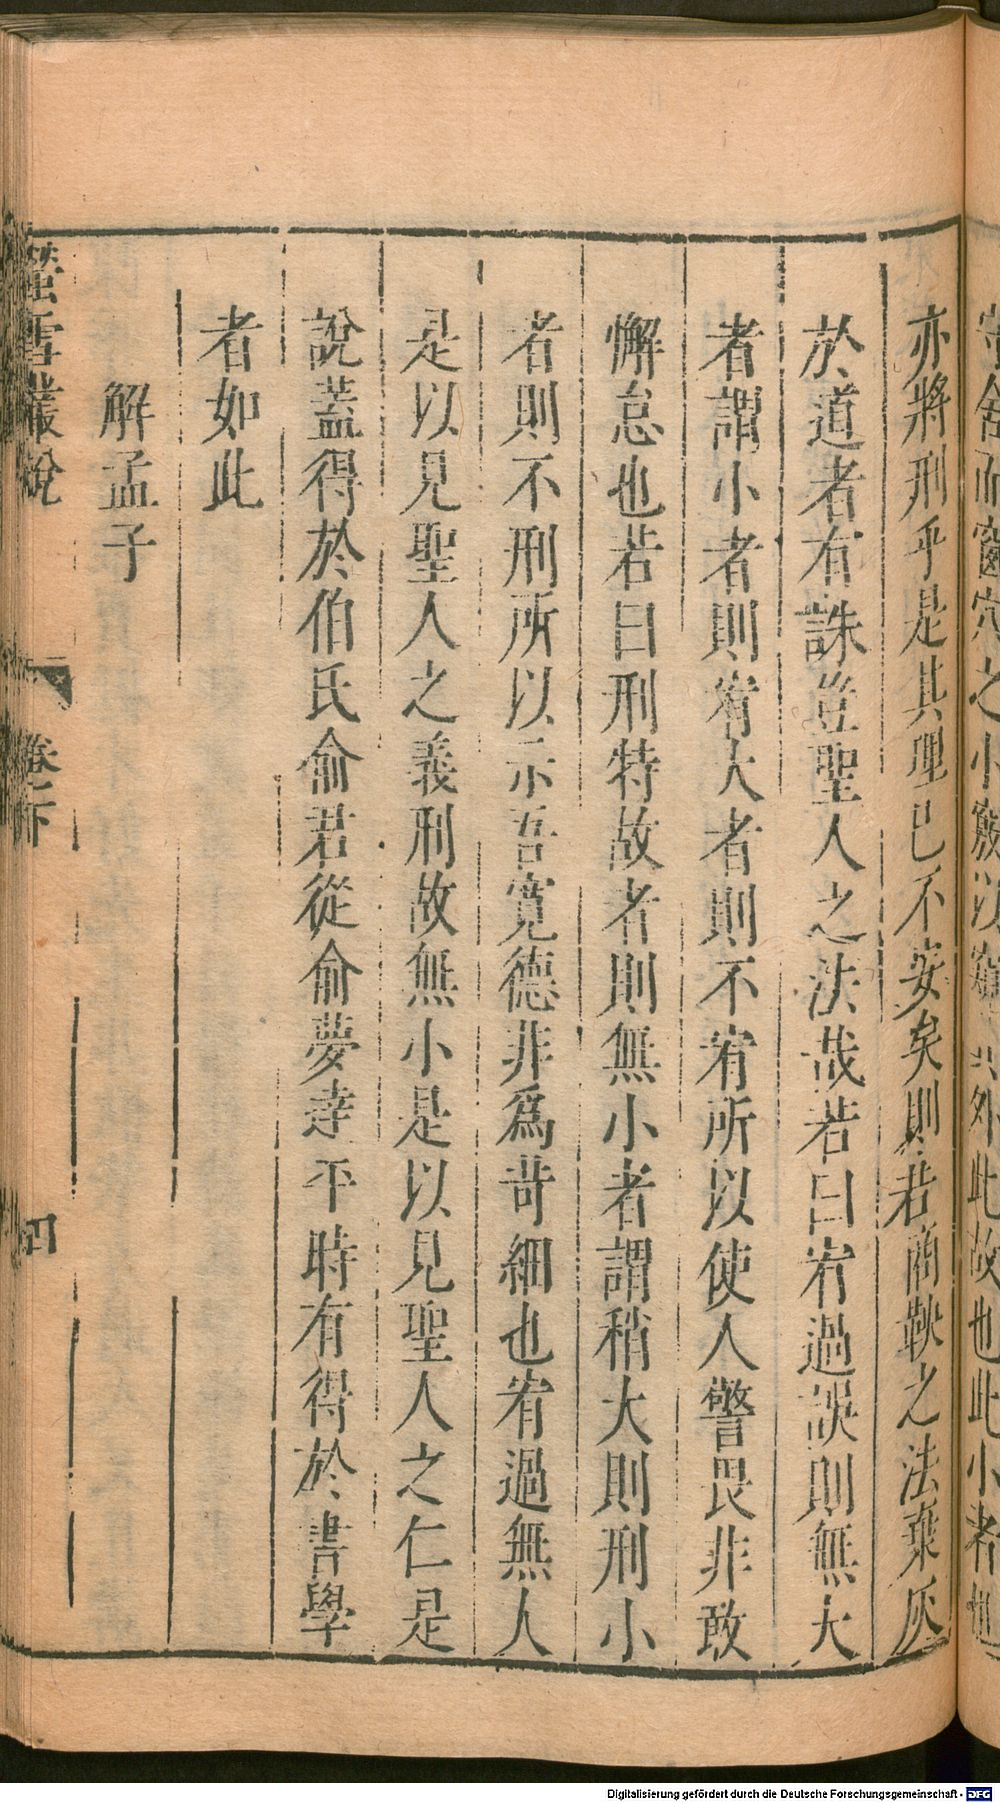 舍而窗穴之小竅以窺其外此故也此小者也
亦將刑乎是其理已不安矣則若商鞅之法棄灰
於道者有誅豈聖人之法哉若曰宥過誤則無大
者謂小者則宥大者則不宥所以使人警畏非敢
懈怠也若曰刑特故者則無小者謂稍大則刑小
者則不刑所以示吾寬德非爲苛細也宥過無人
是以見聖人之義刑故無小是以見聖人之仁是
說蓋得於伯氏俞君從俞夢達平時有得於書學
者如此
解孟子
螢雪叢說
卷下
四
Digitalisierung gefördert durch die Deutsche Forschungsgemeinschaft - DFG